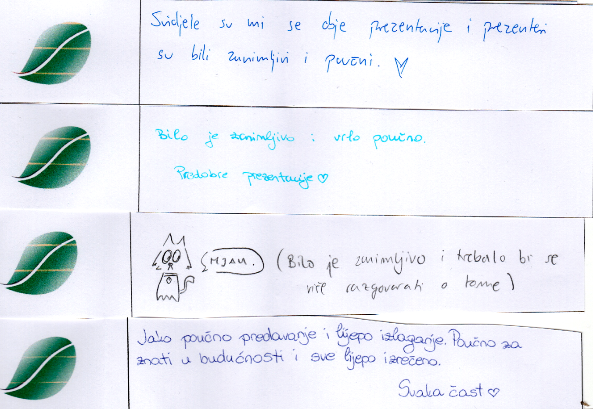 Svidjele su mi se obje prezentacije i prezenteri
su bili zanimljivi i poučni.
Bilo je zanimljivo i vrlo poučno.
Predobre prezentacije
MJAU.
(Bilo je zanimljivo i trebalo bi se
više razgovarati o tome)
Jako poučno predavanje i lijepo izlaganje. Poučno za
znati u budućnosti i sve lijepo izrečeno.
Svaka čast